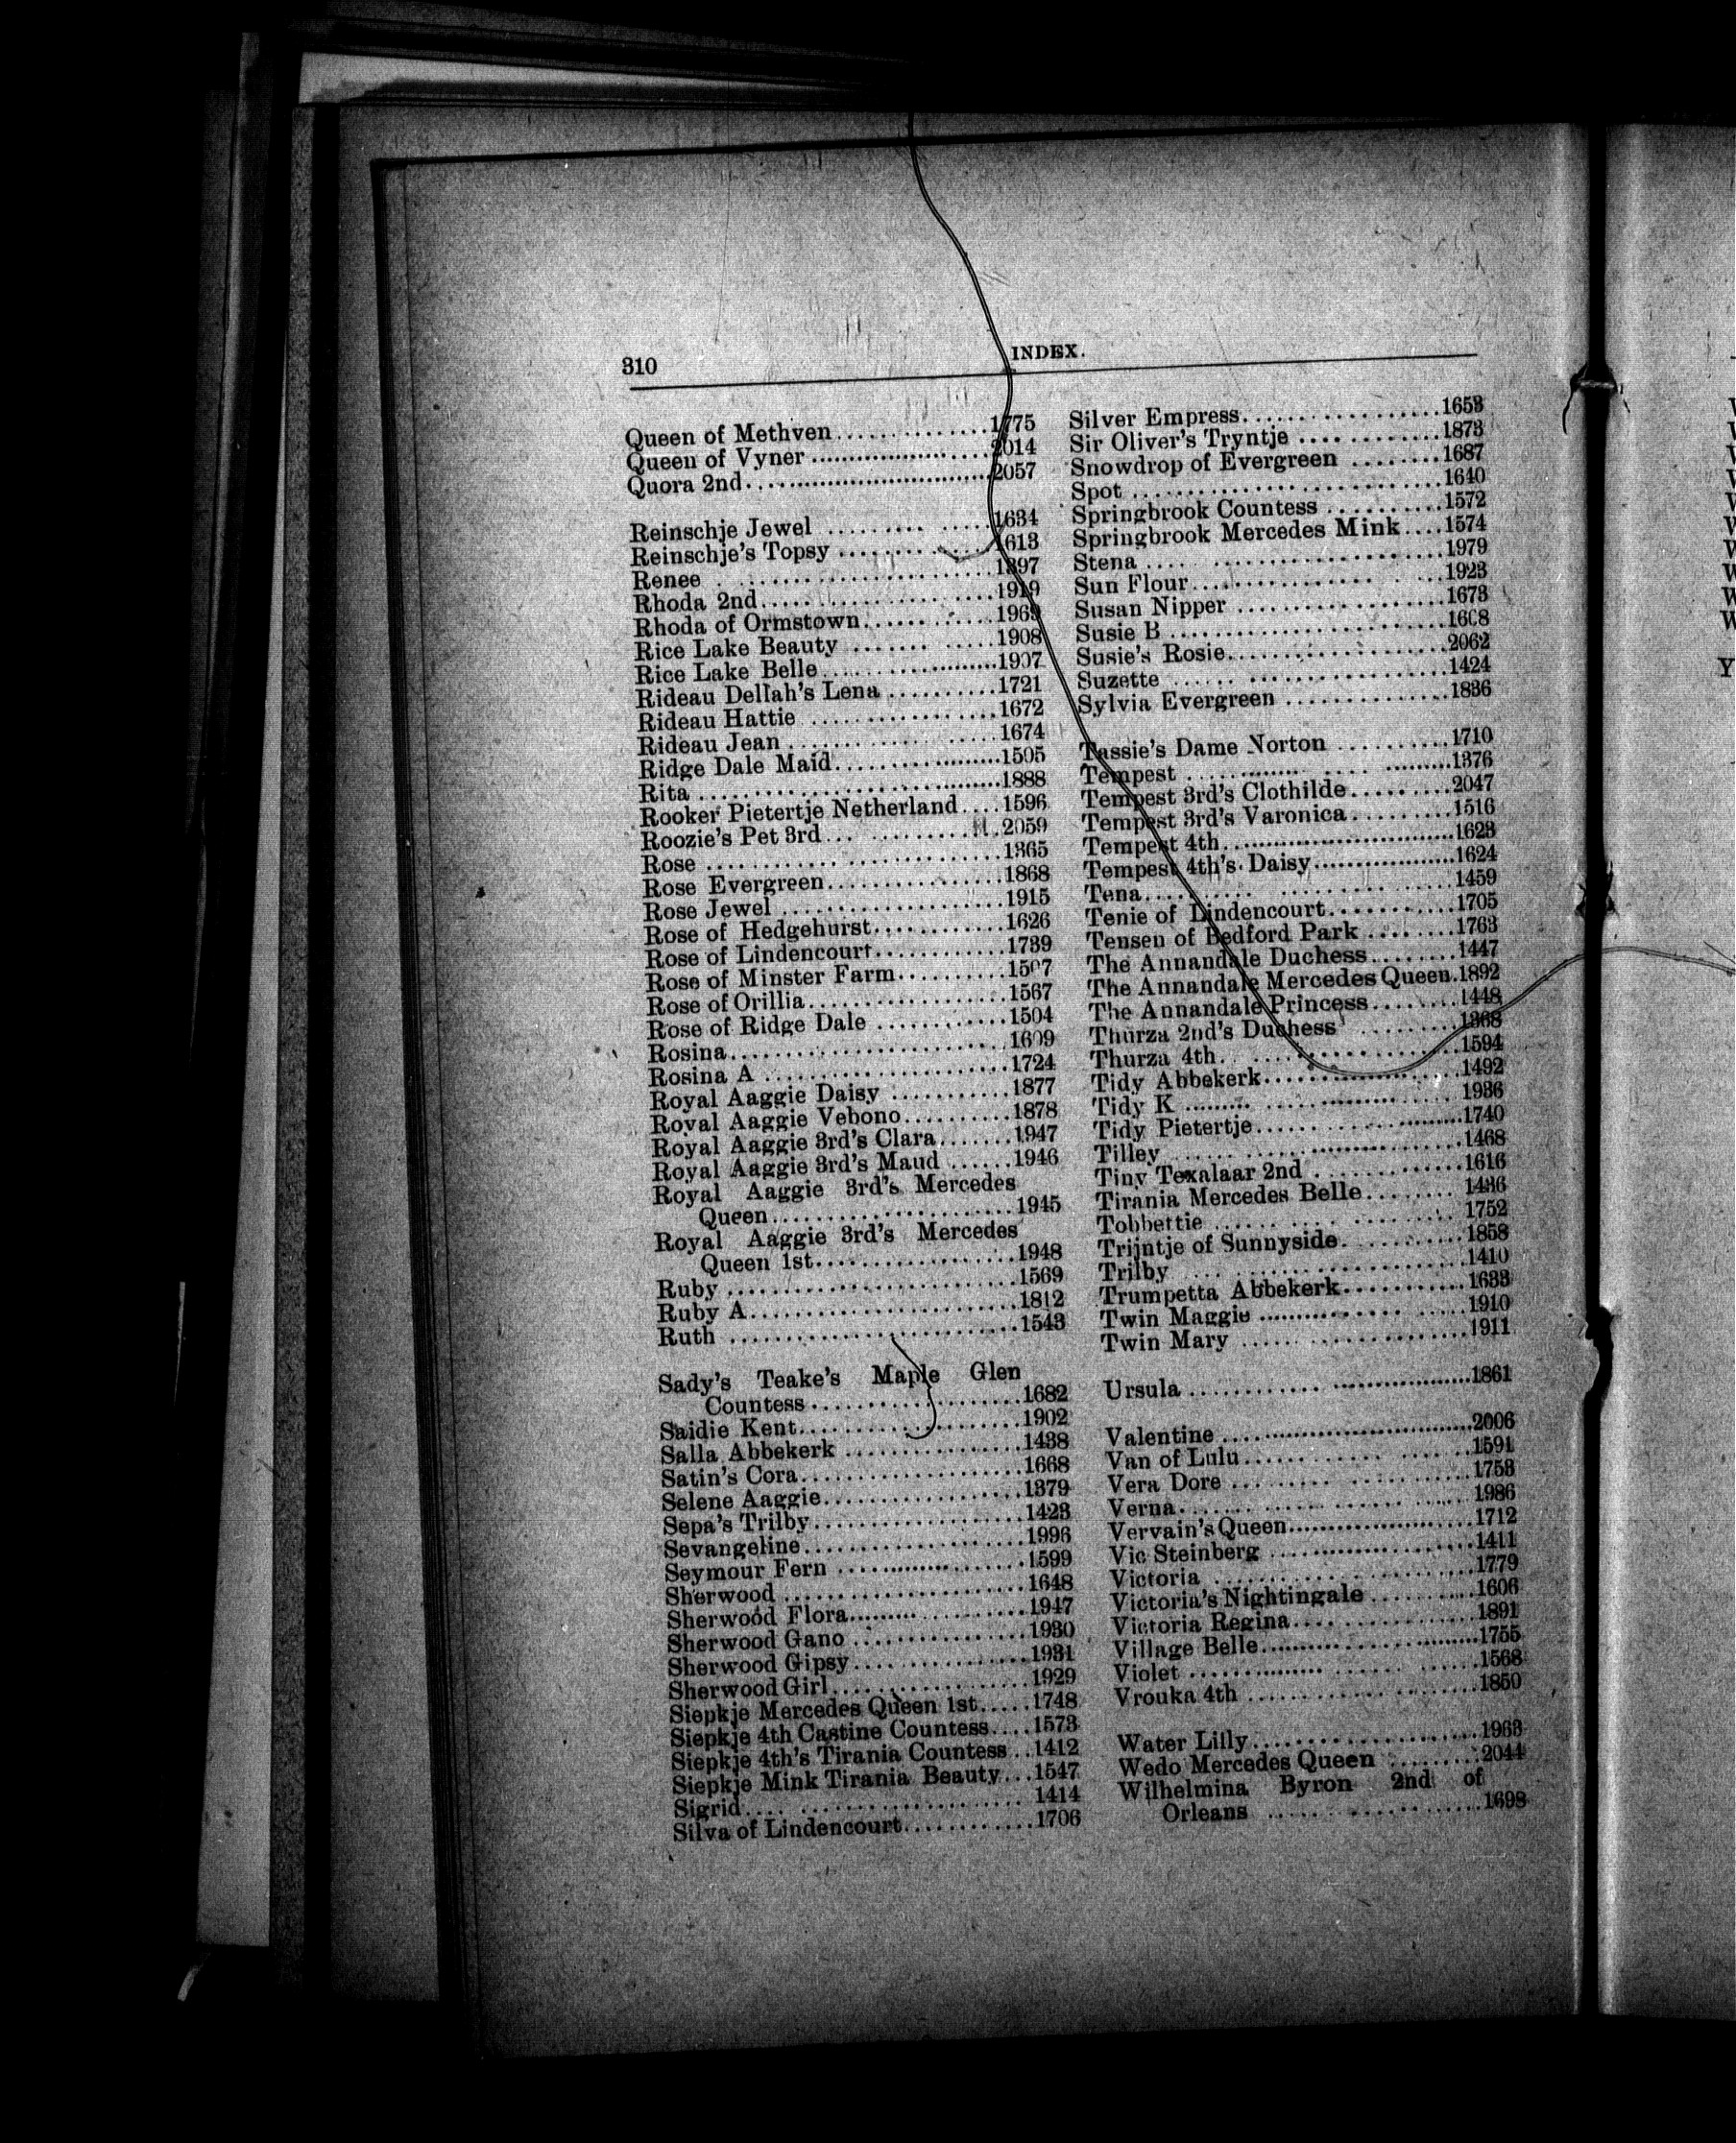 310
INDEX.
Queen of Methven 1775
Queen of Vyner 2014
Quora 2nd 2057
Reinschje Jewel 1634
Reinschje's Topsy 1613
Renee 1397
Rhoda 2nd 1919
Rhoda of Ormstown 1969
Rice Lake Beauty 1908
Rice Lake Belle 1907
Rideau Dellah's Lena 1721
Rideau Hattie 1672
Rideau Jean 1674
Ridge Dale Maid 1505
Rita 1888
Rooker Pietertje Netherland 1596
Roozie's Pet 3rd 2059
Rose 1365
Rose Evergreen 1868
Rose Jewel 1915
Rose of Hedgehurst 1626
Rose of Lindencourt 1739
Rose of Minster Farm 1507
Rose of Orillia 1567
Rose of Ridge Dale 1504
Rosina 1609
Rosina A 1724
Royal Aaggie Daisy 1877
Royal Aaggie Vebono 1878
Royal Aaggie 3rd's Clara 1947
Royal Aaggie 3rd's Maud 1946
Royal Aaggie 3rd's Mercedes
Queen 1945
Royal Aaggie 3rd's Mercedes
Queen 1st 1948
Ruby 1569
Ruby A 1812
Ruth 1543
Sady's Teake's Maple Glen
Countess 1682
Saidie Kent 1902
Salla Abbekerk 1438
Satin's Cora 1668
Selene Aaggie 1379
Sepa's Trilby 1423
Sevangeline 1996
Seymour Fern 1599
Sherwood 1648
Sherwood Flora 1947
Sherwood Gano 1930
Sherwood Gipsy 1931
Sherwood Girl 1929
Siepkje Mercedes Queen 1st 1748
Siepkje 4th Castine Countess 1573
Siepkje 4th's Tirania Countess 1412
Siepkje Mink Tirania Beauty 1547
Sigrid 1414
Silva of Lindencourt 1706
Silver Empress 1653
Sir Oliver's Tryntje 1873
Snowdrop of Evergreen 1687
Spot 1640
Springbrook Countess 1572
Springbrook Mercedes Mink 1574
Stena 1979
Sun Flour 1923
Susan Nipper 1673
Susie B 1608
Susie's Rosie 2062
Suzette 1424
Sylvia Evergreen 1836
Tassie's Dame Norton 1710
Tempest 1376
Tempest 3rd's Clothilde 2047
Tempest 3rd's Varonica 1516
Tempest 4th 1623
Tempest 4th's Daisy 1624
Tena 1459
Tenie of Lindencourt 1705
Tensen of Bedford Park 1763
The Annandale Duchess 1447
The Annandale Mercedes Queen 1892
The Annandale Princess 1448
Thurza 2nd's Duchess 1368
Thurza 4th 1594
Tidy Abbekerk 1492
Tidy K 1936
Tidy Pietertje 1740
Tilley 1468
Tiny Texalaar 2nd 1616
Tirania Mercedes Belle 1436
Tobbettie 1752
Trijntje of Sunnyside 1858
Trilby 1410
Trumpetta Abbekerk 1633
Twin Maggie 1910
Twin Mary 1911
Ursula 1861
Valentine 2006
Van of Lulu 1591
Vera Dore 1753
Verna 1986
Vervain's Queen 1712
Vic Steinberg 1411
Victoria 1779
Victoria's Nightingale 1606
Victoria Regina 1891
Village Belle 1755
Violet 1568
Vrouka 4th 1850
Water Lilly 1963
Wedo Mercedes Queen 2044
Wilhelmina Byron 2nd of
Orleans 1698